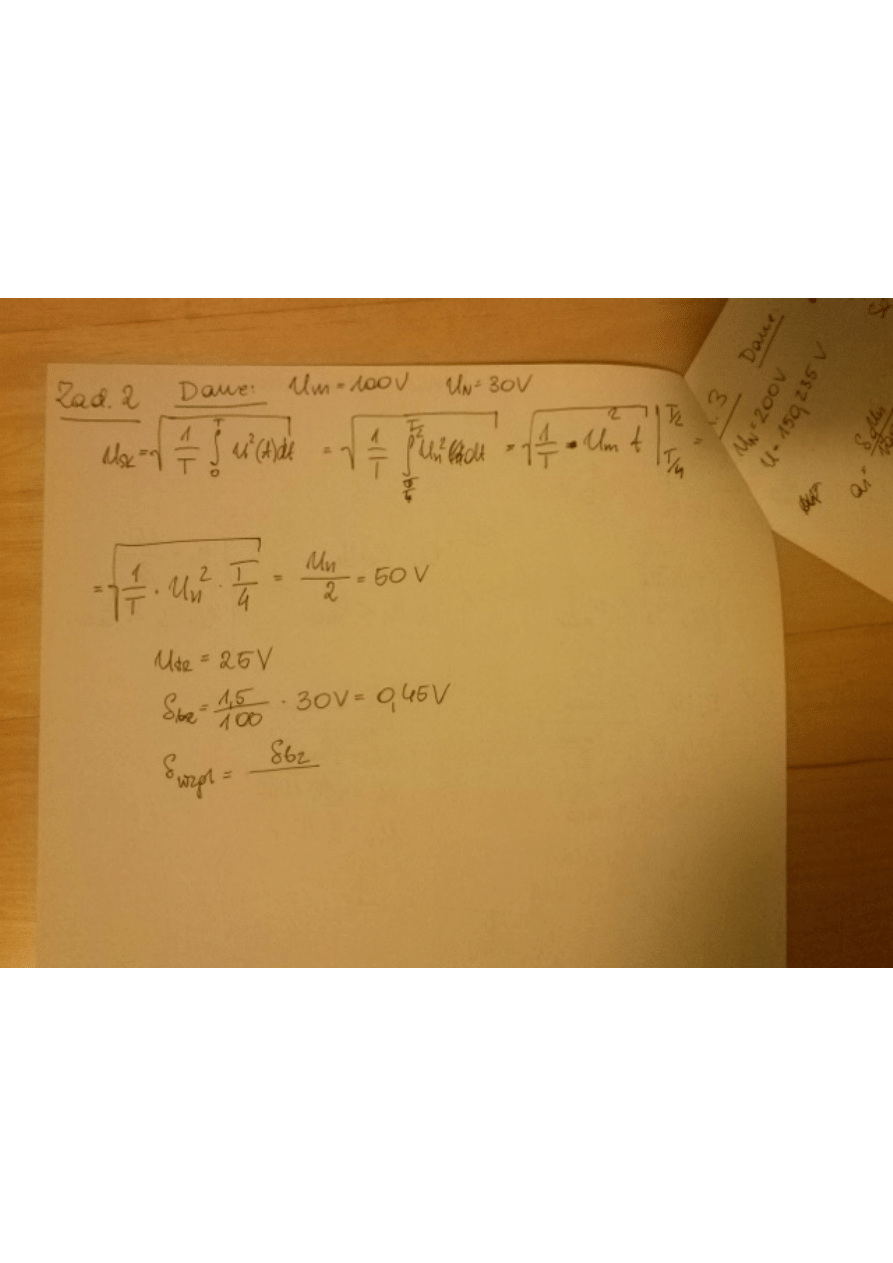 Zad. 2 Dane: Um = 100V UN = 30V
Usk = √(1/T ∫₀ᵀ u²(t)dt) = √(1/T ∫ Um² dt) = √(1/T · Um² t) |T/2 T/4 =
= √(1/T · Um² · T/4) = Um/2 = 50 V
= 25V
δbz = 1,5/100 · 30V = 0,45V
δwzgl = δbz/
3 Dane:
UN = 200V
U = 150,235 V